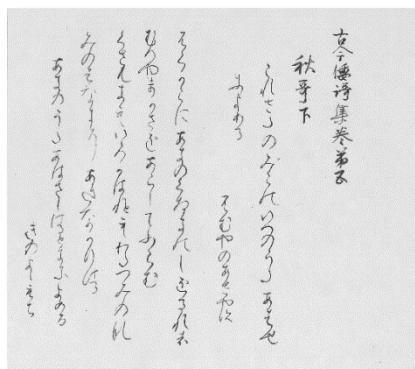 古今倭謌集巻第五
秋哥下
これさたのみこのいへのうたあはせ
によめる
ふむやのあさやす
ふくからにあきのくさきのしをるれは
むへやまかせをあらしといふらむ
くさもきもいろかはれともわたつみのな
みのはなにそあきなかりける
あきのうたあはせ よめる
きのよしもち